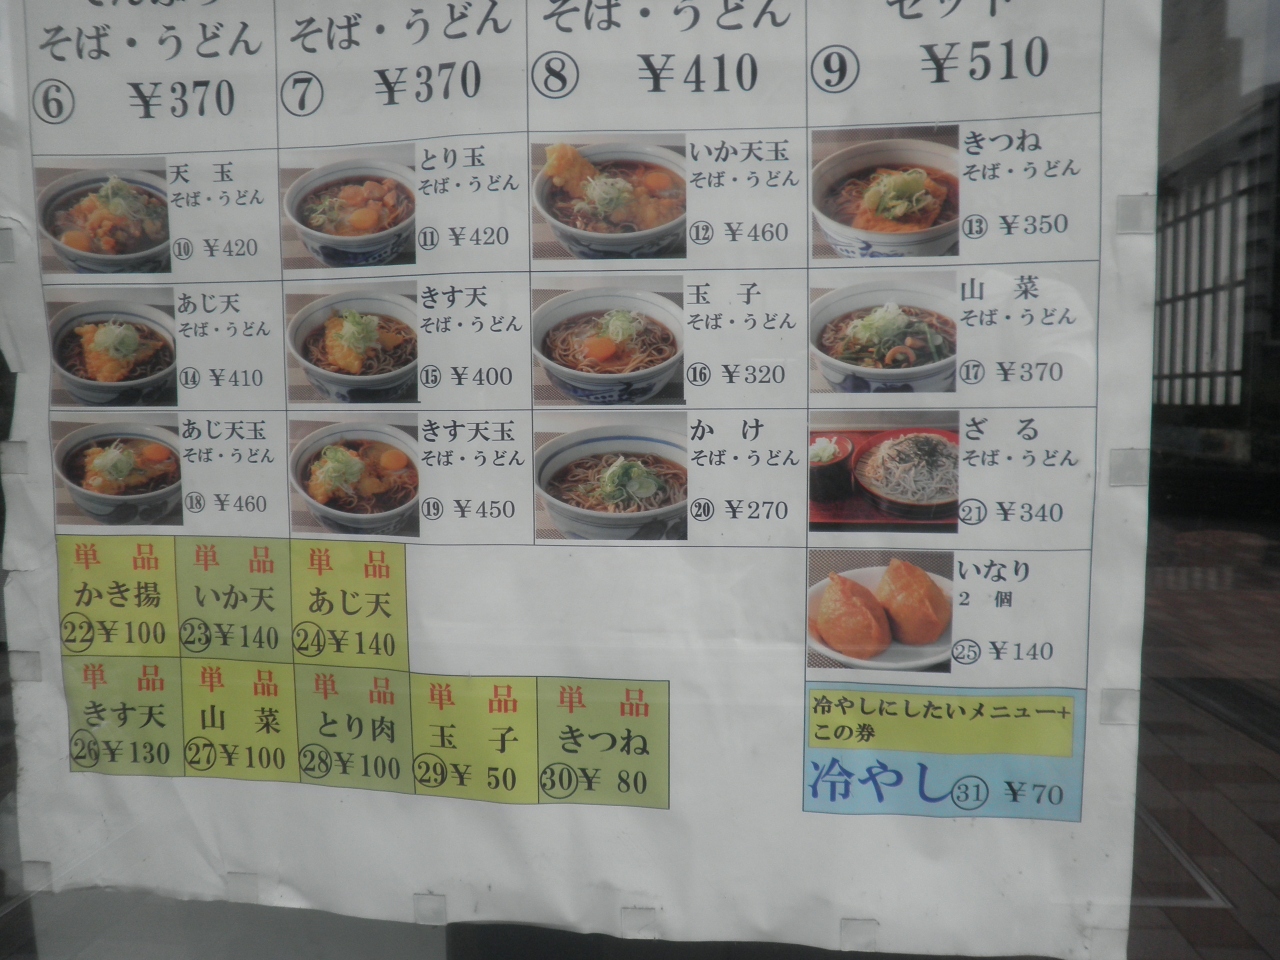 そば・うどん
⑥ ¥370
そば・うどん
⑦ ¥370
そば・うどん
⑧ ¥410
セット
⑨ ¥510
天 玉
そば・うどん
⑩ ¥420
とり玉
そば・うどん
⑪ ¥420
いか天玉
そば・うどん
⑫ ¥460
きつね
そば・うどん
⑬ ¥350
あじ天
そば・うどん
⑭ ¥410
きす天
そば・うどん
⑮ ¥400
玉 子
そば・うどん
⑯ ¥320
山 菜
そば・うどん
⑰ ¥370
あじ天玉
そば・うどん
⑱ ¥460
きす天玉
そば・うどん
⑲ ¥450
か け
そば・うどん
⑳ ¥270
ざ る
そば・うどん
㉑ ¥340
単 品
かき揚
㉒¥100
単 品
いか天
㉓¥140
単 品
あじ天
㉔¥140
いなり
2 個
㉕ ¥140
単 品
きす天
㉖¥130
単 品
山 菜
㉗¥100
単 品
とり肉
㉘¥100
単 品
玉 子
㉙¥ 50
単 品
きつね
㉚¥ 80
冷やしにしたいメニュー+
この券
冷やし㉛ ¥70